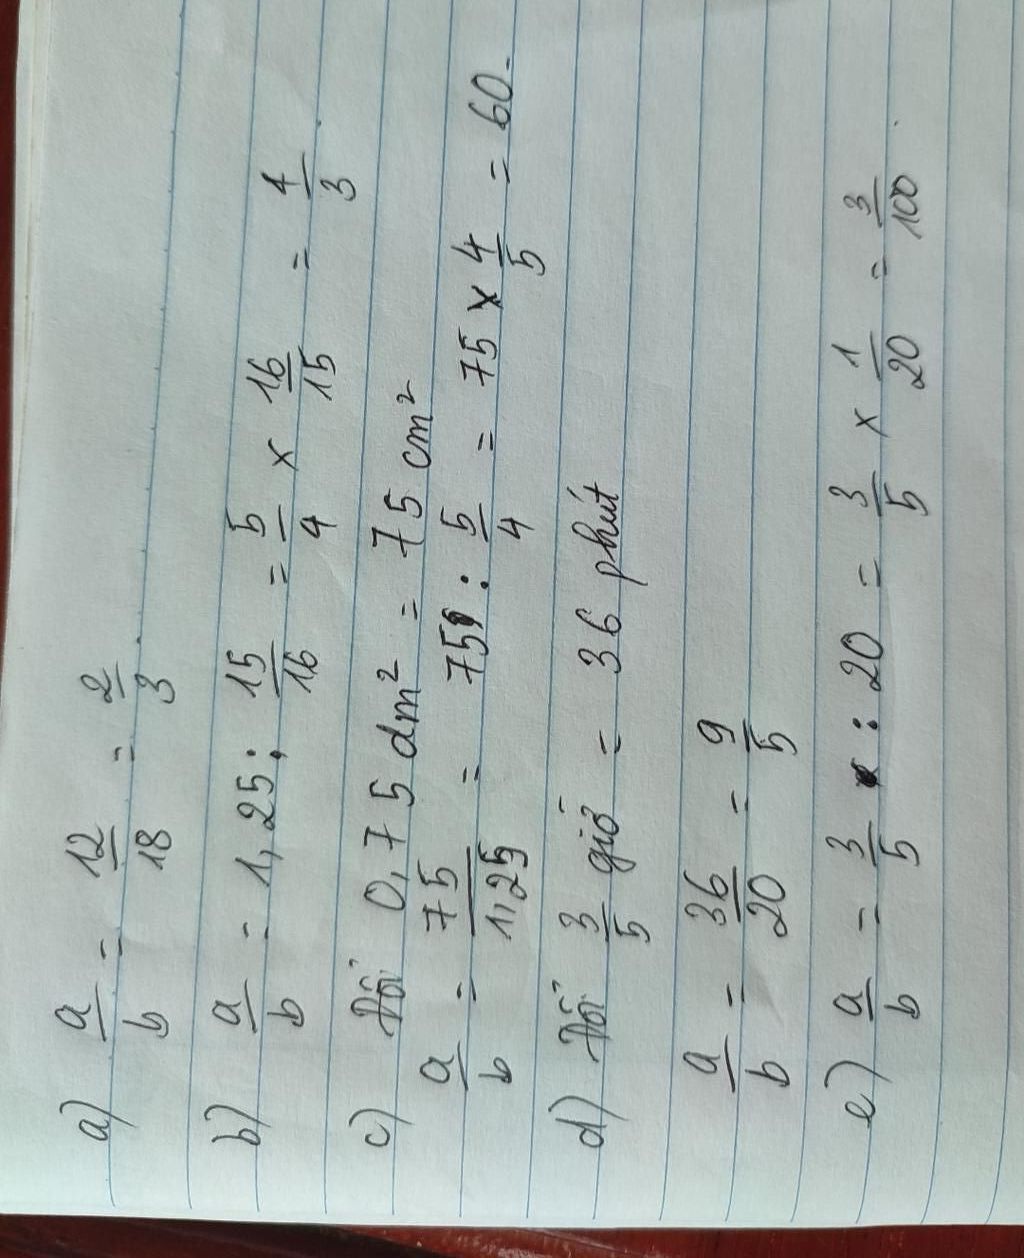 a) a/b = 12/18 = 2/3.
b) a/b = 1,25 : 15/16 = 5/4 x 16/15 = 4/3.
c) Đổi 0,75 dm² = 75 cm²
a/b = 75/1,25 = 75 : 5/4 = 75 x 4/5 = 60.
d) Đổi 3/5 giờ = 36 phút
a/b = 36/20 = 9/5
e) a/b = 3/5 : 20 = 3/5 x 1/20 = 3/100.